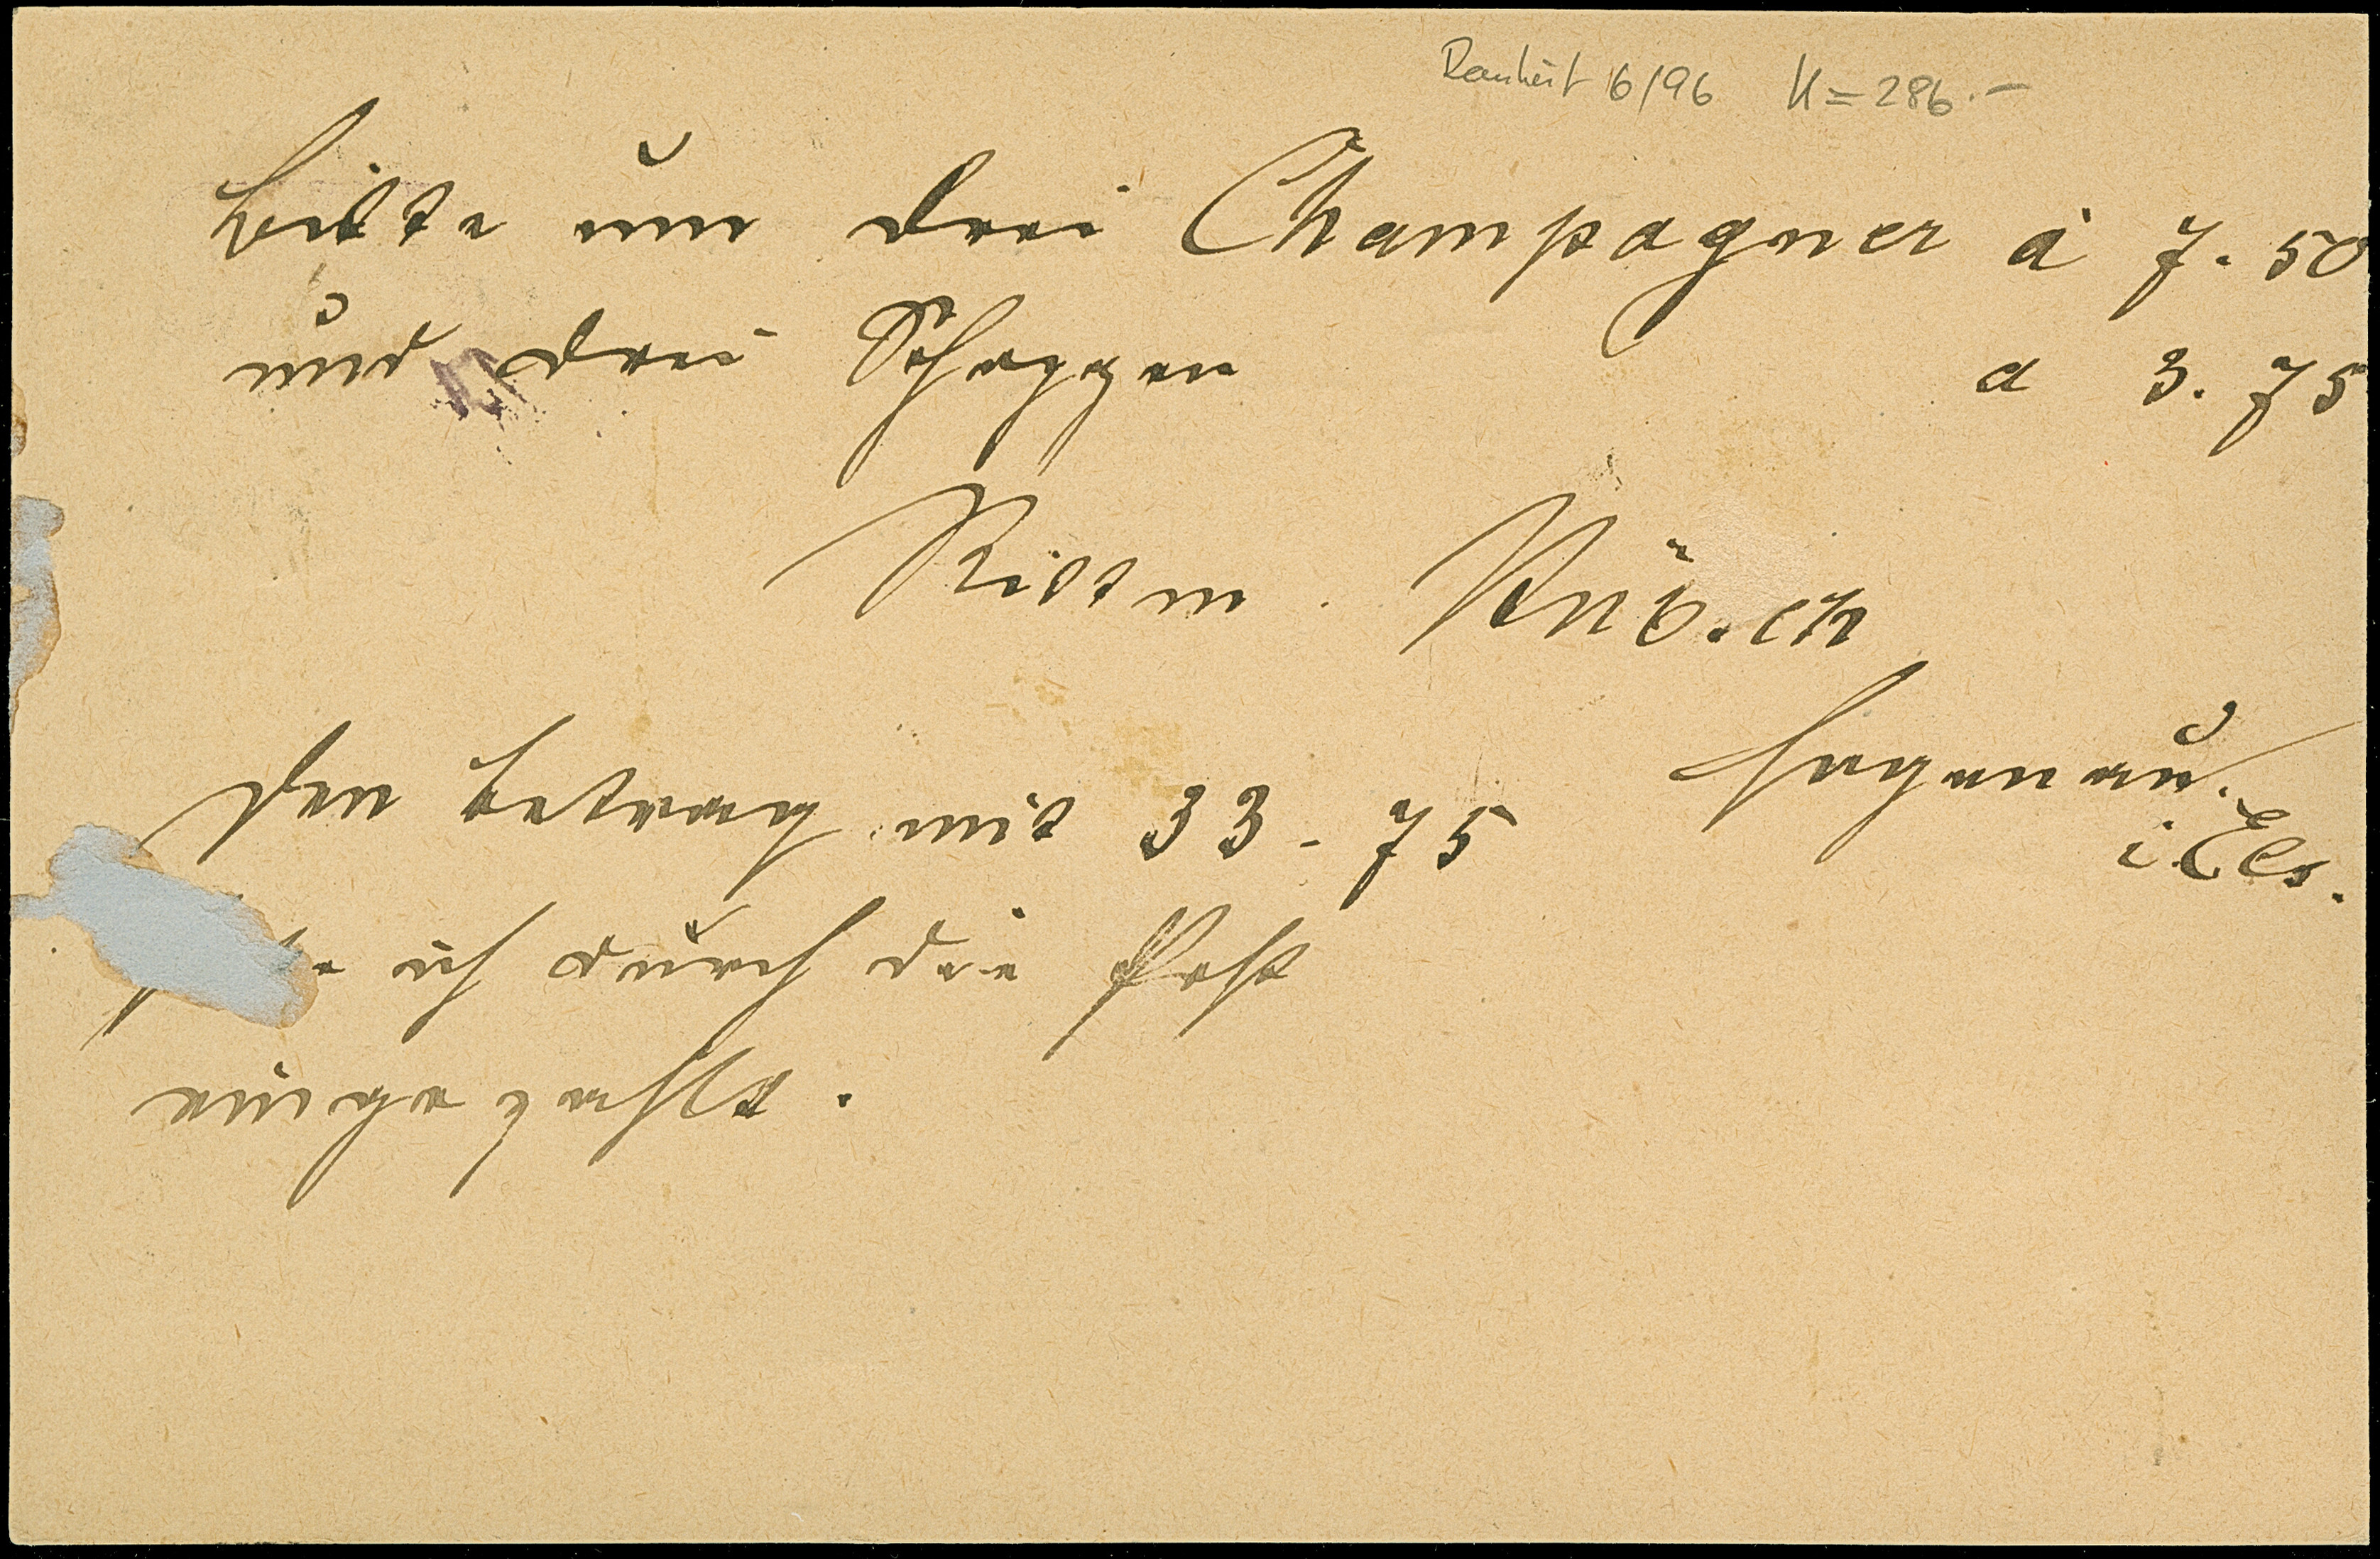 6/96 K=286.-
Bitte um drei Champagner à 7.50
und drei Schoppen a 3.75
Hagenau
i. Els.
den Betrag mit 33-75
ich durch die Post
eingesandt.